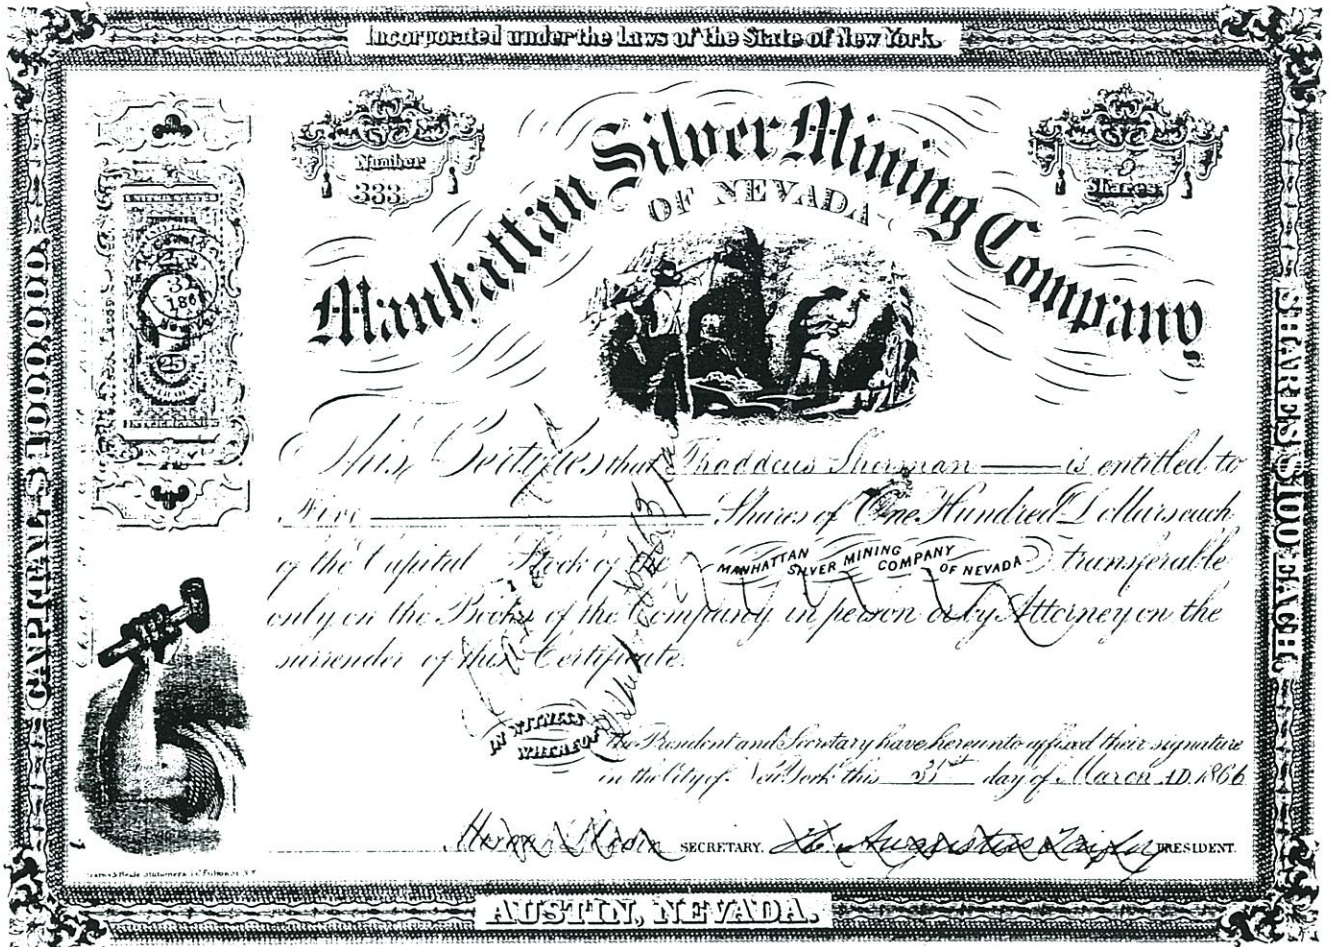 Incorporated under the Laws of the State of New York.
Number
333
Shares
Manhattan Silver Mining Company
OF NEVADA
CAPITAL $1,000,000.
SHARES $100 EACH.
UNITED STATES
31
186
This Certifies that Thaddeus Sherman is entitled to
Five Shares of One Hundred Dollars each
of the Capital Stock of the MANHATTAN SILVER MINING COMPANY OF NEVADA transferable
only on the Books of the Company in person or by Attorney on the
surrender of this Certificate.
IN WITNESS WHEREOF the President and Secretary have hereunto affixed their signature
in the City of New York this 31st day of March A.D. 1866
SECRETARY. PRESIDENT.
AUSTIN, NEVADA.